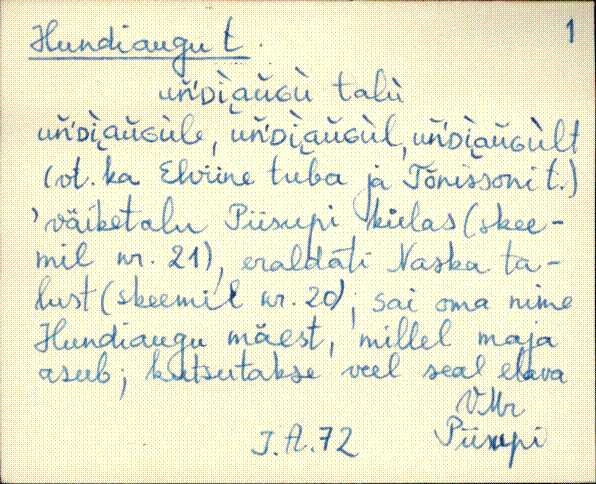 Hundiaugu t. 1
uń'ᴅì̮aŭɢù talù
uń'ᴅì̮aŭɢùle, uń'ᴅì̮aŭɢùl, uń'ᴅì̮aŭɢùlt
(vt. ka Elviine tuba ja Tõnissoni t.)
'väiketalu Piisupi külas (skee-
mil nr. 21), eraldati Naska ta-
lust (skeemil nr. 20); sai oma nime
Hundiaugu mäest, millel maja
asub; kutsutakse veel seal elava
VMr
J.A.72 Piisupi